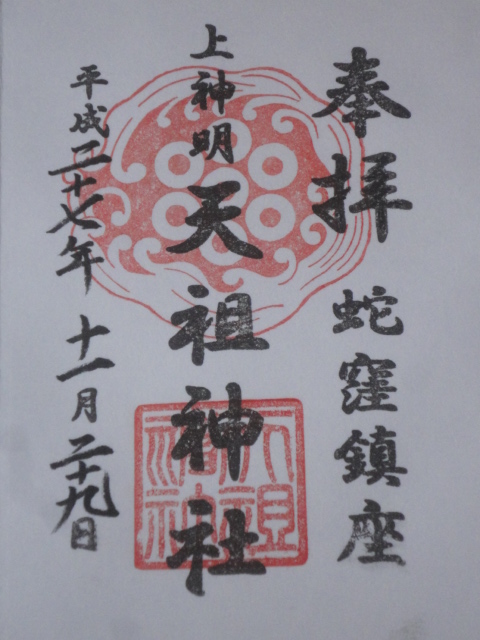 奉拝
蛇窪鎮座
上神明
天祖神社
平成二十七年十一月二十九日
天祖神社